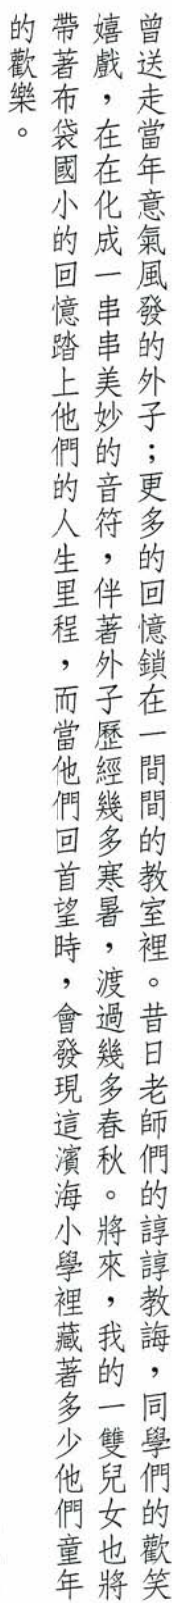 曾送走當年意氣風發的外子；更多的回憶鎖在一間間的教室裡。昔日老師們的諄諄教誨，同學們的歡笑
嬉戲，在在化成一串串美妙的音符，伴著外子歷經幾多寒暑，渡過幾多春秋。將來，我的一雙兒女也將
帶著布袋國小的回憶踏上他們的人生里程，而當他們回首望時，會發現這濱海小學裡藏著多少他們童年
的歡樂。